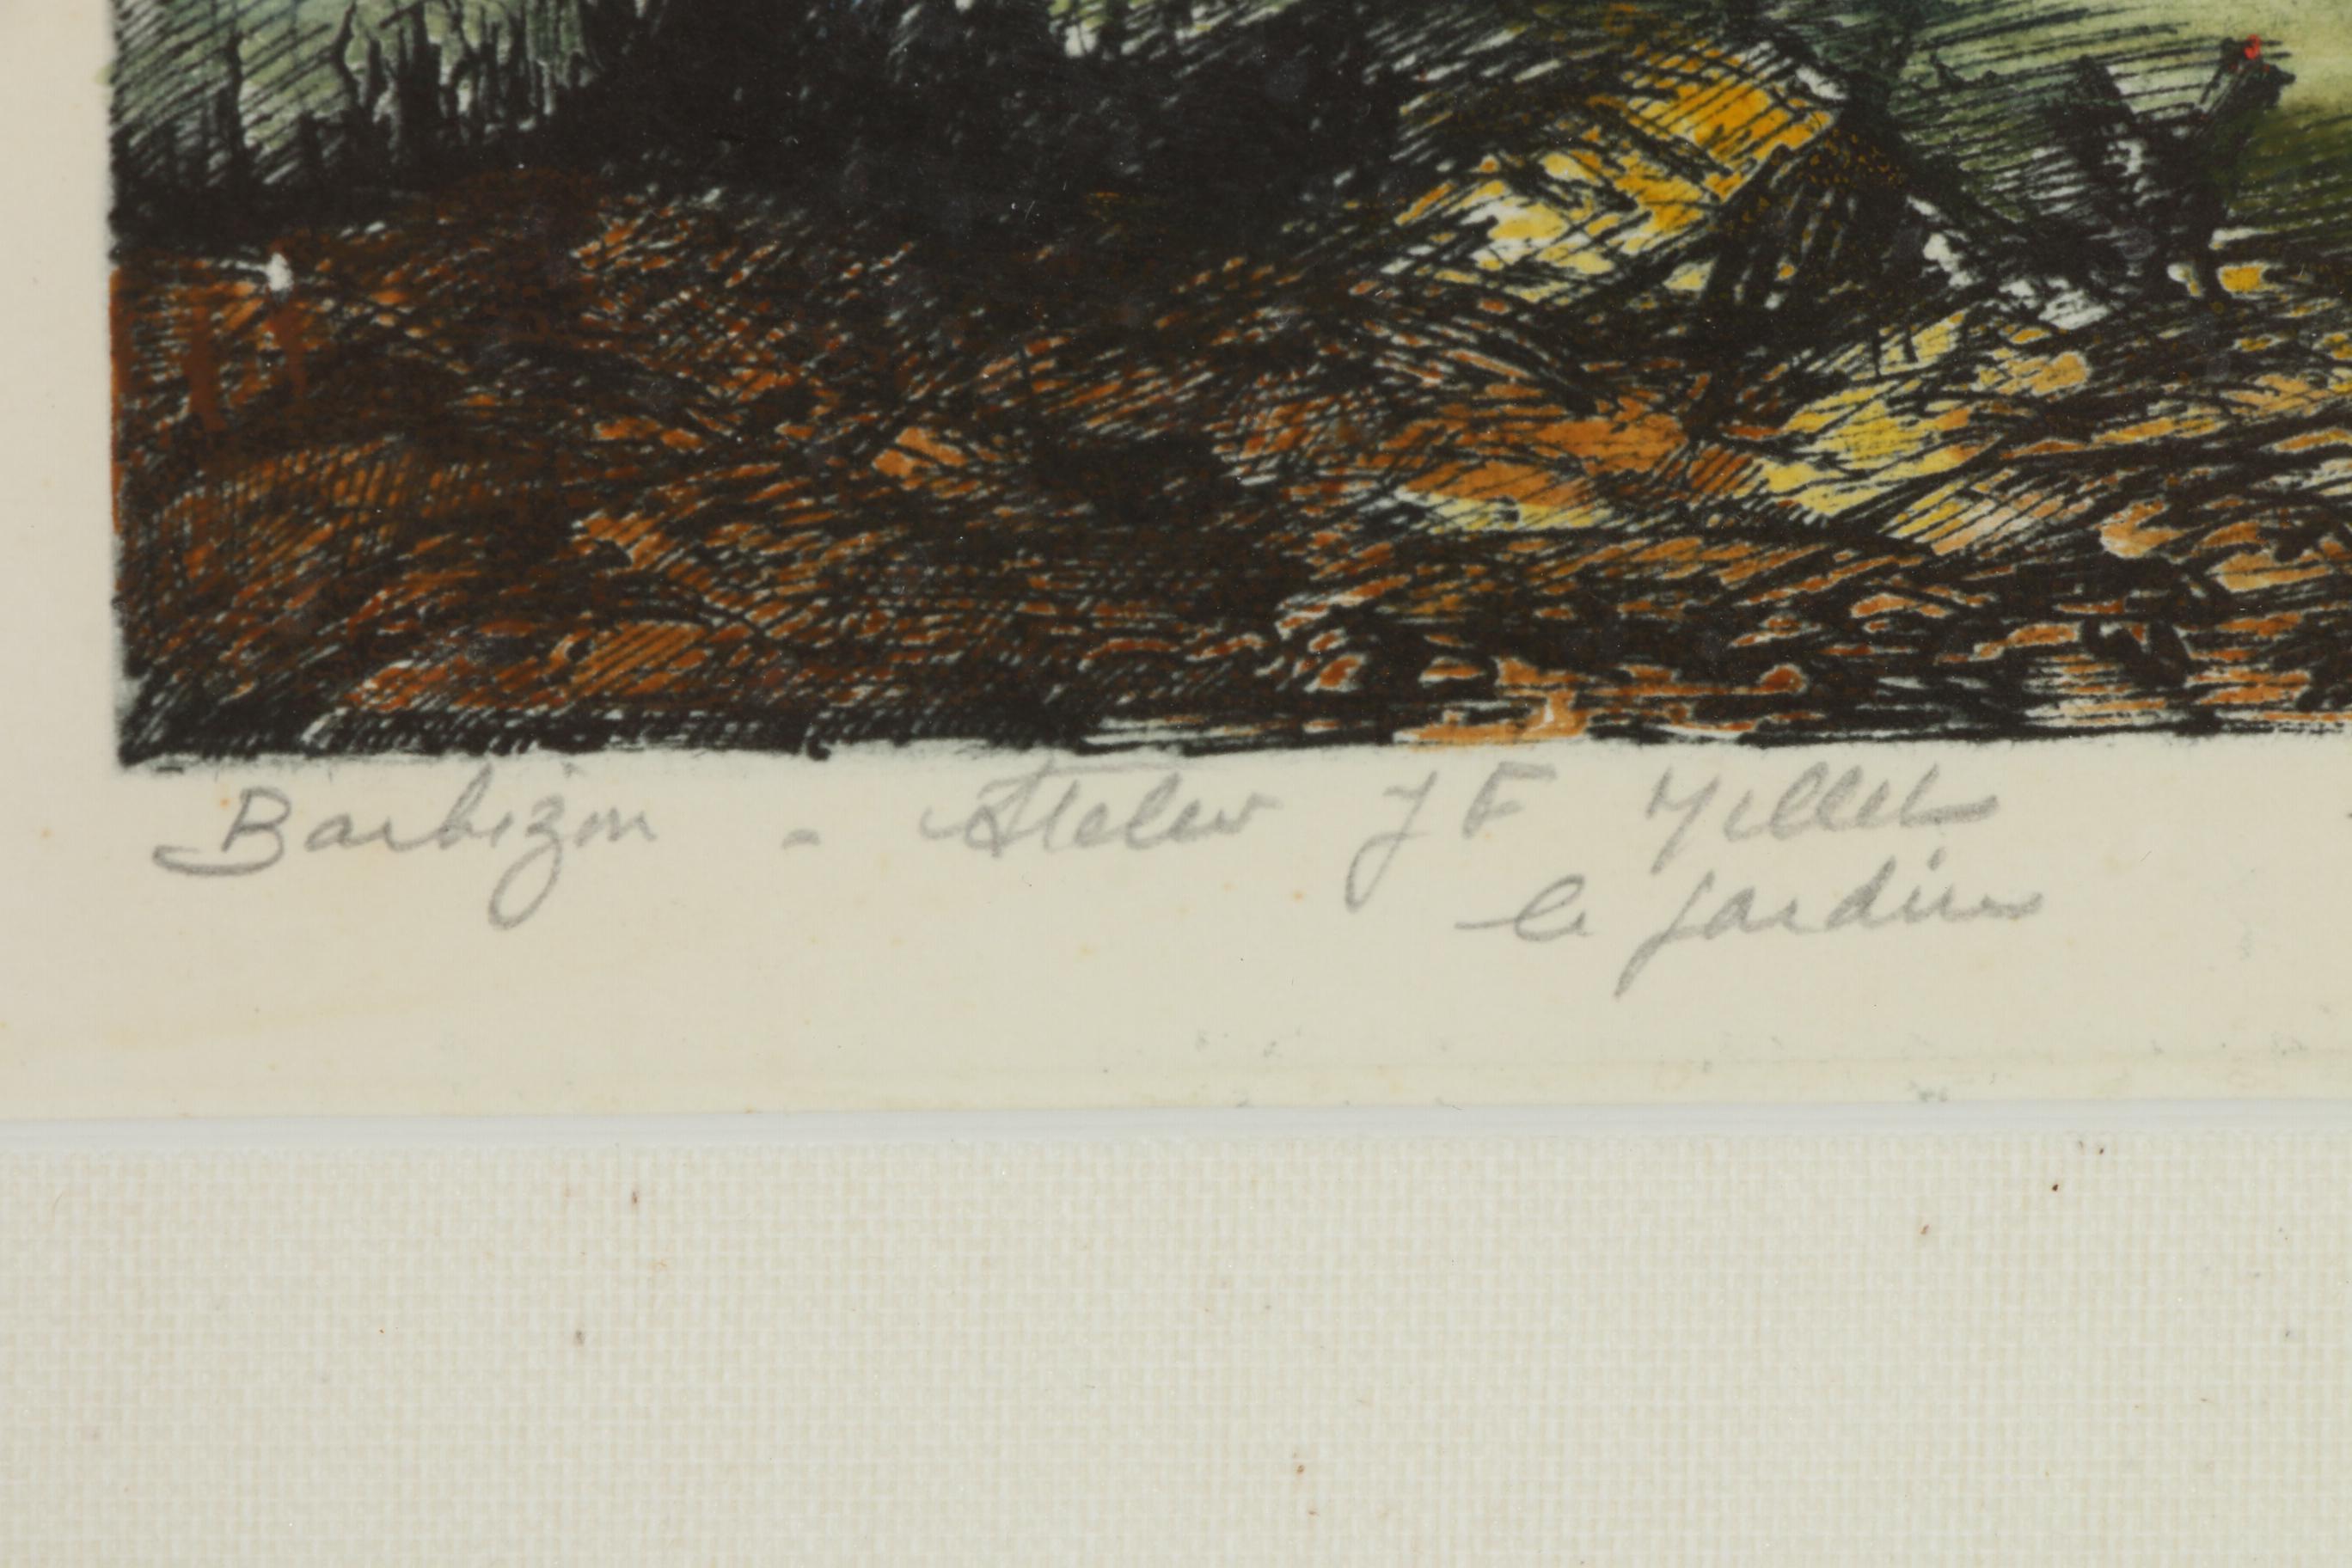 Barbizon - Atelier J F Millet
le jardin